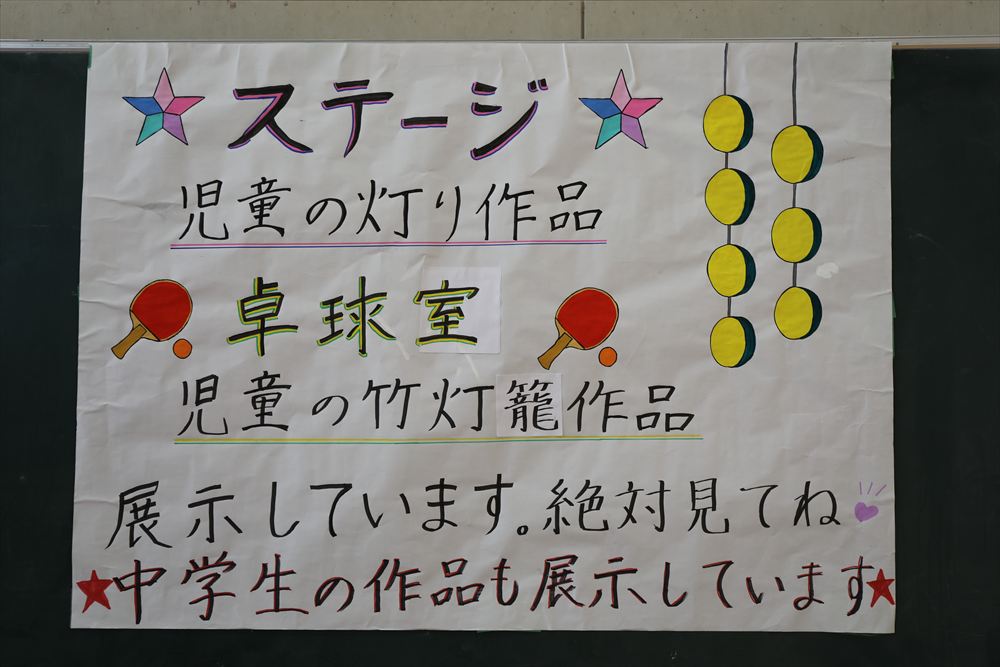 ステージ
児童の灯り作品
卓球室
児童の竹灯籠作品
展示しています。絶対見てね
中学生の作品も展示しています